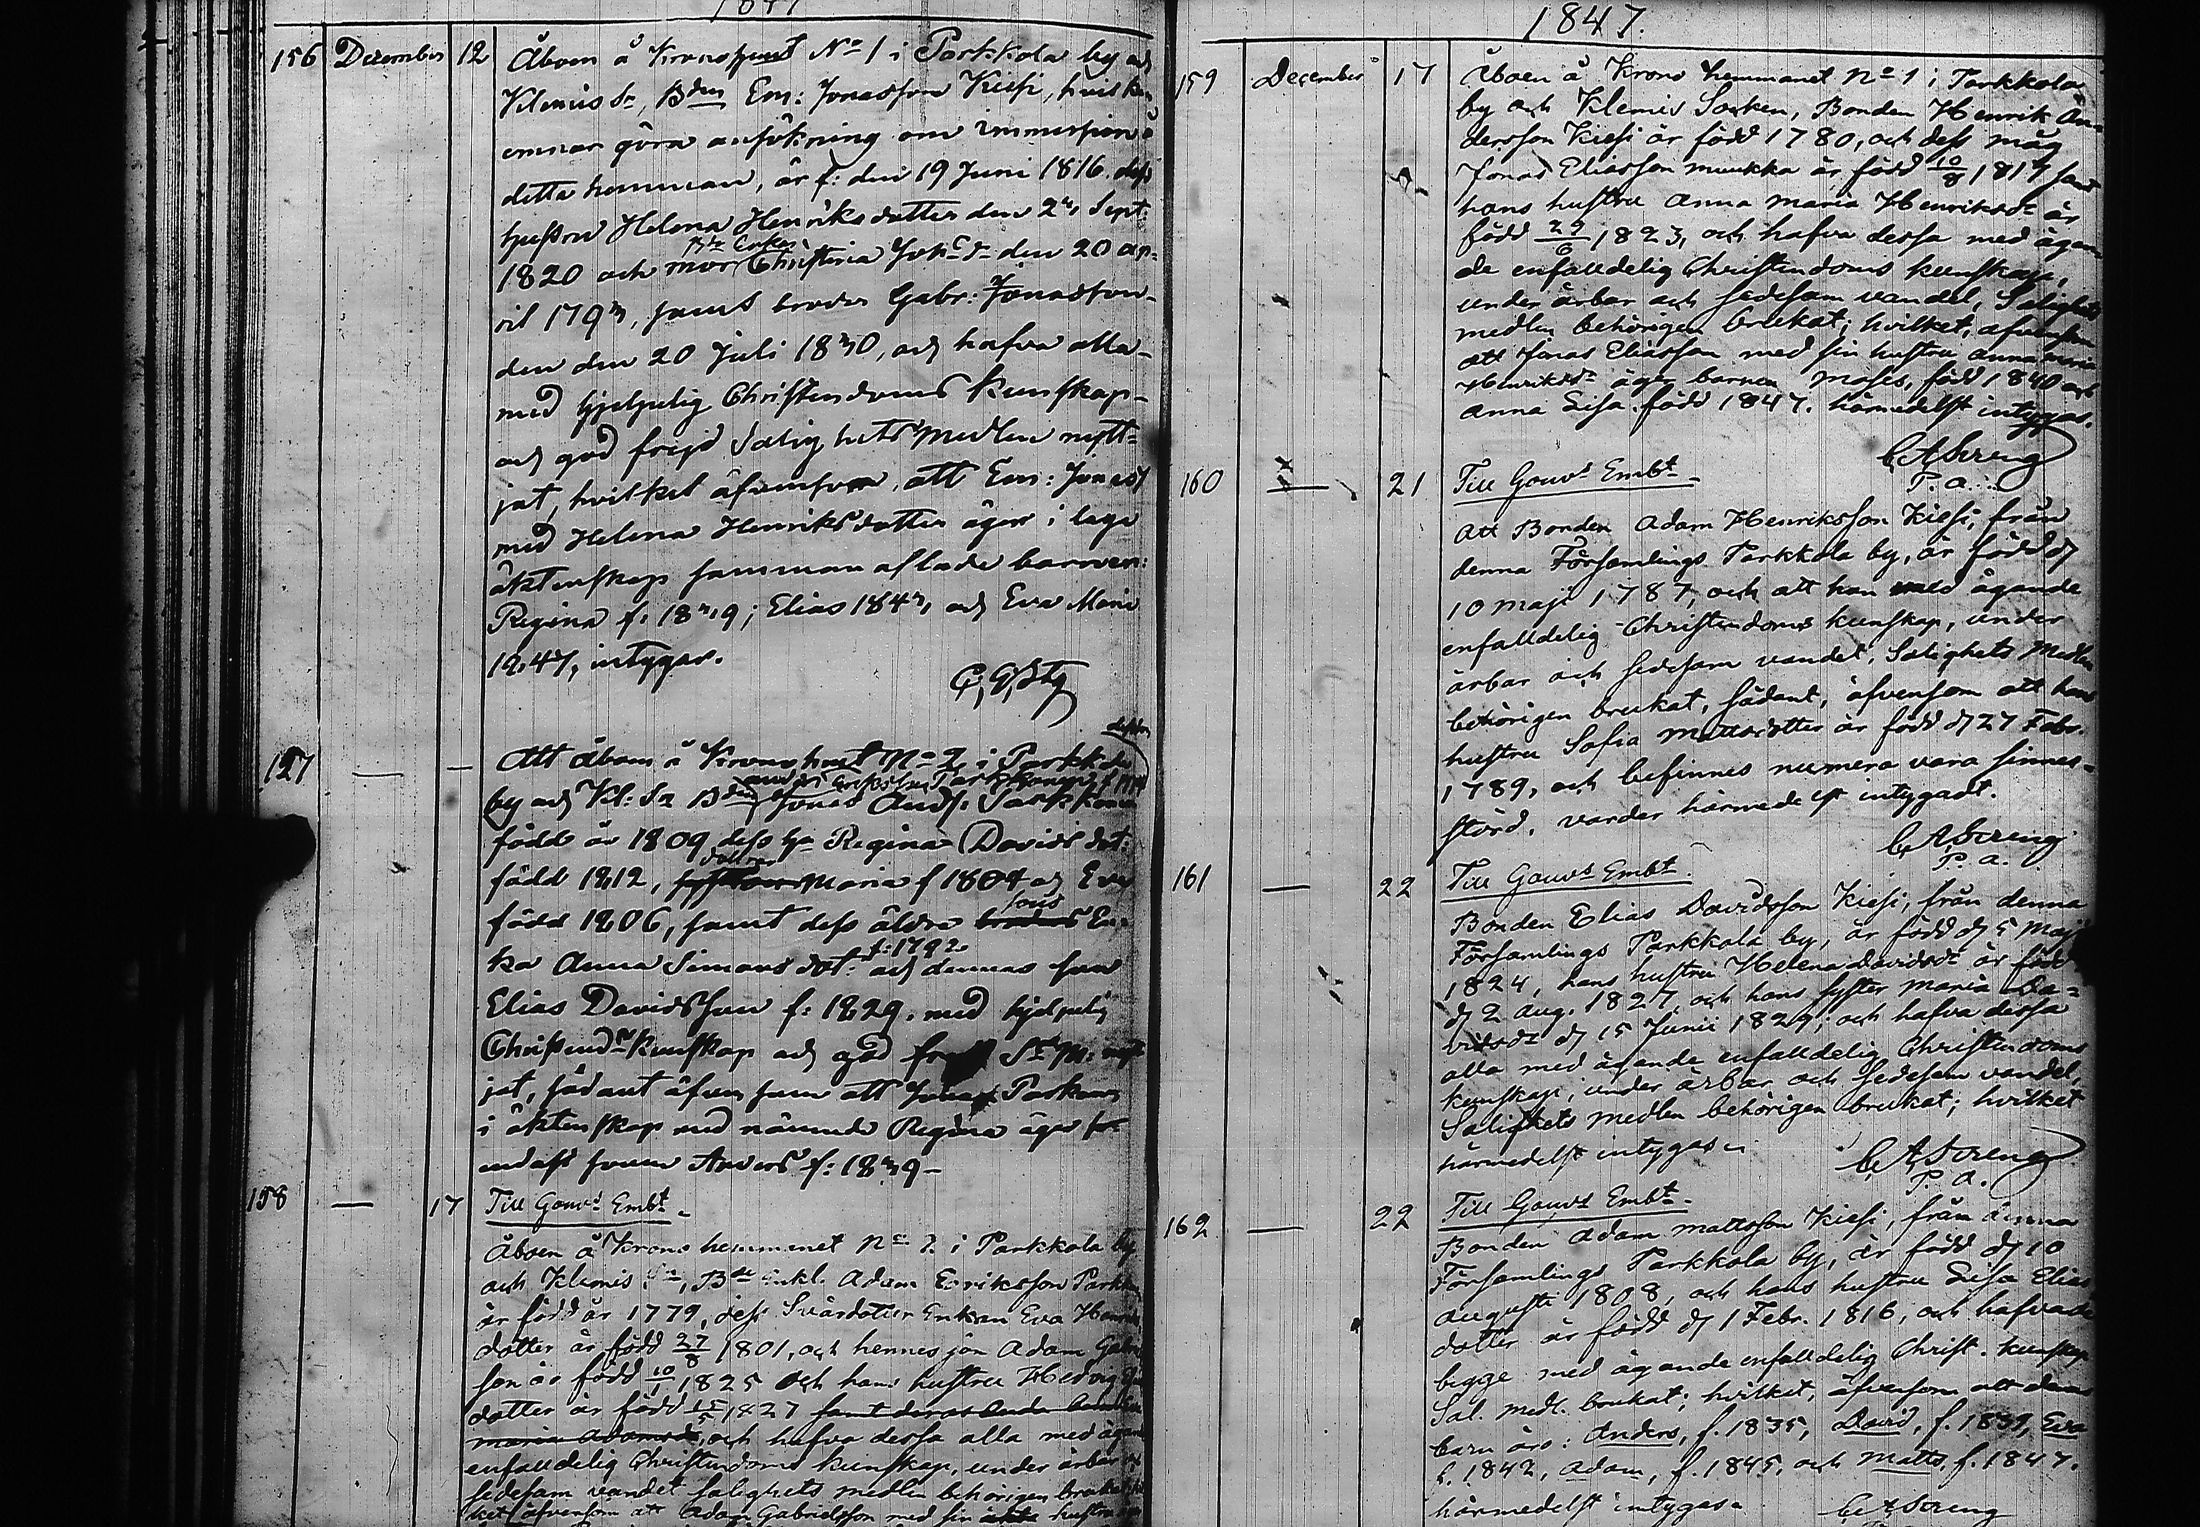 1847
156 December 12 Åboen å Kronohemt No 1 i Parkkola by och
Klemis Sn, Bden Em: Jonasson Kiesi, hvilken
ernar göra ansökning om immission å
detta hemman, är f: den 19 Juni 1816. dess
hustru Helena Henriksdotter den 2 Sept:
1820 och mor Christina den 20 Ap-
ril 1793, samt broder Gabr: Jonasson
den 20 Juli 1830, och hafva alla
med hjelpelig Christendoms kunskap
och god frejd Salighetsmedlen nytt-
jat, hvilket äfvensom, att Em: Jonass
med Helena Henriksdotter äger i laga
äktenskap sammanaflade barnen:
Regina f. 1839; Elias 1843, och Eva Maria
1847, intygas.
157 — — Att åboen å Kronohemt No 2 i Parkkola
by och Kl: Sn Bden Jonas Andss. Parkkonen
född år 1809 dess Hu Regina Davidsdot:
född 1812, Maria f 1804 och Eva
född 1806, samt dess äldre sons En-
ka Anna Simonsdot: f: 1792 och dennas son
Elias Davidsson f: 1829. med hjelpelig
Christend kunskap och god Sal M: nytt
jat, sådant äfvensom att Jonas Parkonen
i äktenskap med nämnde Regina äger
endast sonen Anders f: 1839 –
158 — 17 Till Gouvs Embt.
Åboen å Krono hemmanet No 2. i Parkkola by
och Klemis Sn, Bde Enkl. Adam Eriksson Parkkonen
är född år 1779, dess Svärdotter Enkan Eva Henriks
dotter är född 27/8 1801, och hennes son Adam Gabri
son är född 10/1 1825 och hans hustru Hedvig
dotter är född 15/5 1827 samt deras
Maria Adamsdr, och hafva dessa alla med ägande
enfalldelig Christendoms kunskap, under ärbar och
sedesam vandel salighets medlen behörigen brukat
ket äfvensom att Adam Gabrielsson med sin hustru
1847.
159 December 17 Åboen å Krono hemmanet No 1 i Parkkola
by och Klemis Socken, Bonden Henrik An-
dersson Kiesi är född 1780, och dess måg
Jonas Eliasson Muukka är född 10/8 1814 samt
hans hustru Anna Maria Henriksdr är
född 29/6 1823, och hafva dessa med ägan-
de enfalldelig Christendoms kunskap,
under ärbar och sedesam vandel, Salighets
medlen behörigen brukat; hvilket, äfvensom
att Jonas Eliasson med sin hustru Anna Maria
Henriksdr äger barnen Moses, född 1840 och
Anna Lisa född 1847. härmedelst intygas.
C A Soreng
P. a.
160 — 21 Till Gouvs Embt.
Att Bonden Adam Henriksson Kiesi, från
denna Församlings Parkkola by, är född d
10 Maji 1787, och att han med ägande
enfalldelig Christendoms kunskap, under
ärbar och sedesam vandel, Salighets Medlen
behörigen brukat, sådant, äfvensom att hans
hustru Sofia Mattsdotter är född d 27 Febr.
1789, och befinnes numera vara sinnes-
störd, varder härmedelst intygadt.
C A Soreng
P. a.
161 — 22 Till Gouvs Embt.
Bonden Elias Davidsson Kiesi, från denna
Församlings Parkkola by, är född d 5 Maji
1824, hans hustru Helena Davidsdr är född
d 2 Aug. 1827, och hans syster Maria Da-
vidsdr d 15 Junii 1829; och hafva dessa
alla med ägande enfalldelig Christendoms
kunskap, under ärbar och sedesam vandel,
Salighets medlen behörigen brukat; hvilket
härmedelst intygas.
C A Soreng
P. a.
162 — 22 Till Gouvs Embt.
Bonden Adam Mattsson Kiesi, från denna
Församlings Parkkola by, är född d 10
Augusti 1808, och hans hustru Lisa Elias
dotter är född d 1 Febr. 1816, och hafva de
begge med ägande enfalldelig Christ. kunskap
Sal. medl. brukat; hvilket, äfvensom att deras
barn äro: Anders, f. 1835, David, f. 1839, Eva
f. 1842, Adam, f. 1845, och Matts, f. 1847.
härmedelst intygas.
C A Soreng